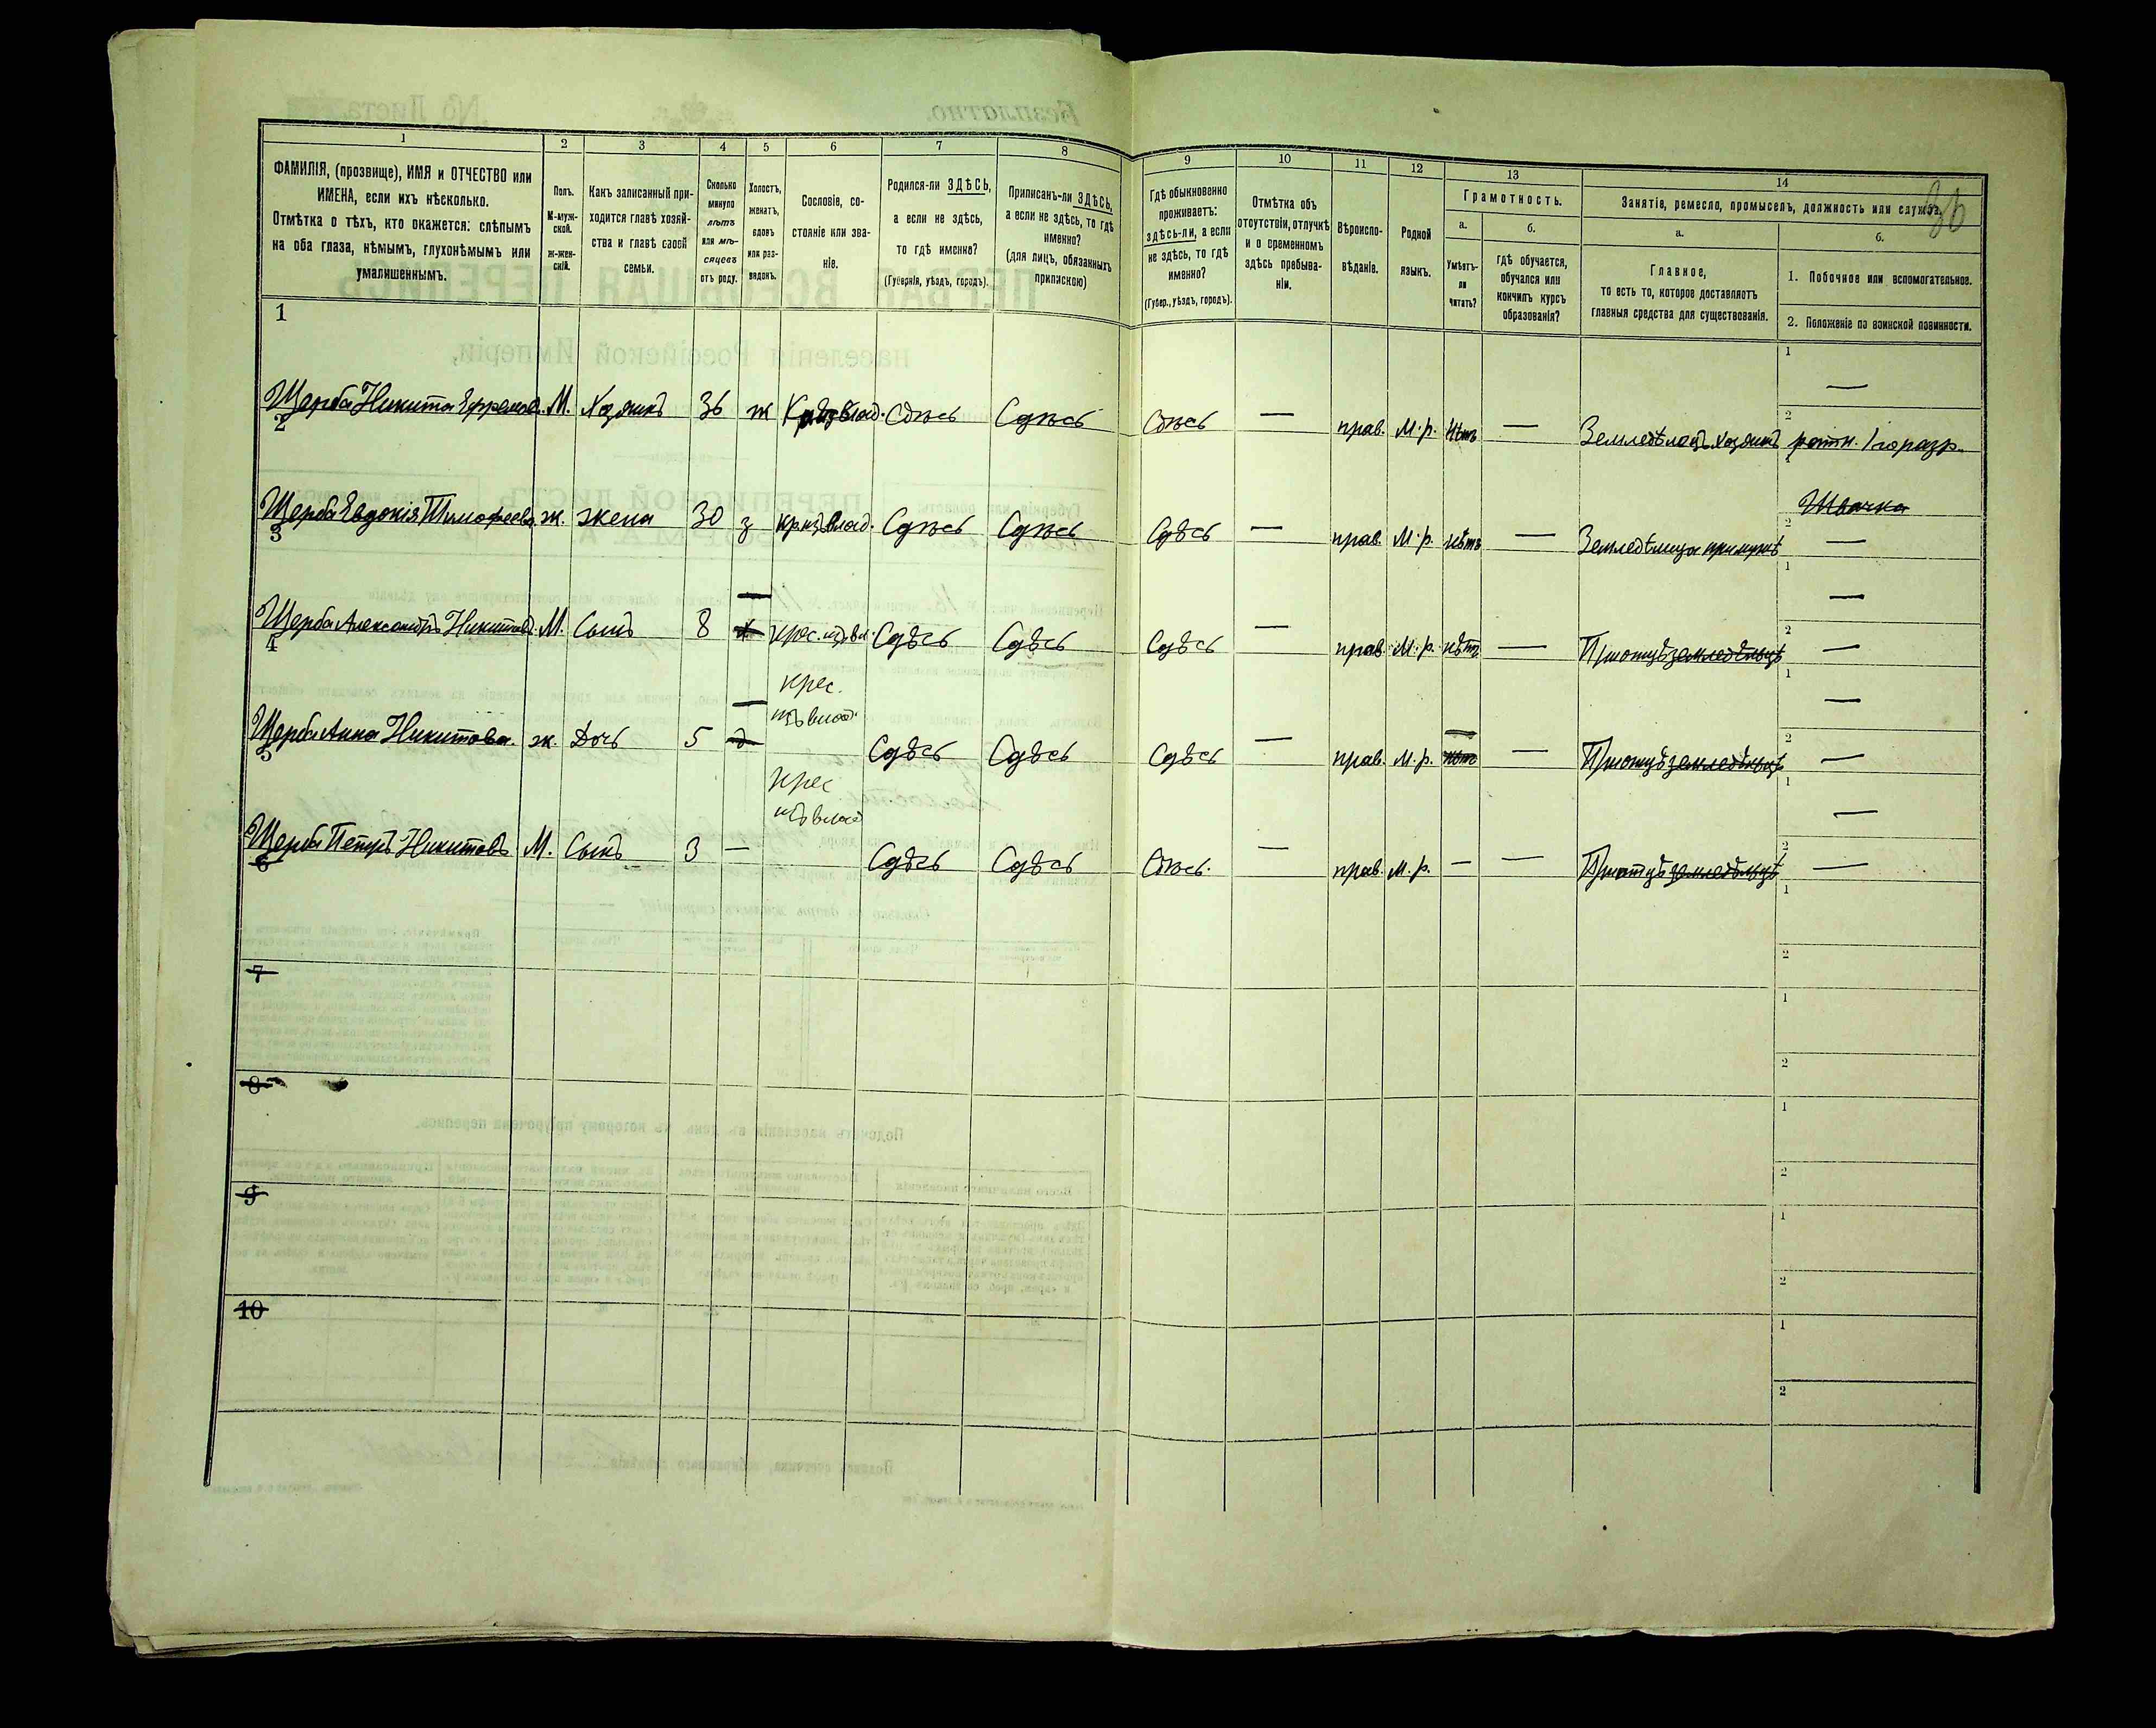 36
1 2 3 4 5 6 7 8 9 10 11 12 13 14
ФАМИЛІЯ, (прозвище), ИМЯ и ОТЧЕСТВО или
ИМЕНА, если ихъ нѣсколько.
Отмѣтка о тѣхъ, кто окажется: слѣпымъ
на оба глаза, нѣмымъ, глухонѣмымъ или
умалишеннымъ.
Полъ.
М-муж-
ской.
ж-жен-
скій.
Какъ записанный при-
ходится главѣ хозяй-
ства и главѣ своей
семьи.
Сколько
минуло
лѣтъ
или мѣ-
сяцевъ
отъ роду.
Холостъ,
женатъ,
вдовъ
или раз-
веденъ.
Сословіе, со-
стояніе или зва-
ніе.
Родился-ли ЗДѢСЬ,
а если не здѣсь,
то гдѣ именно?
(Губернія, уѣздъ, городъ).
Приписанъ-ли ЗДѢСЬ,
а если не здѣсь, то гдѣ
именно?
(для лицъ, обязанныхъ
припискою)
Гдѣ обыкновенно
проживаетъ:
здѣсь-ли, а если
не здѣсь, то гдѣ
именно?
(Губер., уѣздъ, городъ).
Отмѣтка объ
отсутствіи, отлучкѣ
и о временномъ
здѣсь пребыва-
ніи.
Вѣроиспо-
вѣданіе.
Родной
языкъ.
Грамотность.
а.
Умѣетъ-
ли
читать?
б.
гдѣ обучается,
обучался или
кончилъ курсъ
образованія?
Занятіе, ремесло, промыселъ, должность или служба.
а.
Главное,
то есть то, которое доставляетъ
главныя средства для существованія.
б.
1. Побочное или вспомогательное.
2. Положеніе по воинской повинности.
1
1 —
Щерба Никита Ефремов. М. Хозяинъ 36 ж Кр. изъ влад. Сдѣсь Сдѣсь Сдѣсь — прав. М. р. нѣтъ — Земледѣлецъ хозяинъ 2 ратн. 1го разр.
2
1 Швачка
Щерба Евдокія Тимофеева ж. жена 30 з кр. изъ влад. Сдѣсь Сдѣсь Сдѣсь — прав. М. р. нѣтъ — Земледѣлица при мужѣ 2 —
3
1 —
Щерба Александръ Никитовъ. М. Сынъ 8 — крес. изъ вл. Сдѣсь Сдѣсь Сдѣсь — прав. М. р. нѣтъ — При отцѣ земледѣльцѣ 2 —
4
1 —
крес.
изъ влад.
Щерба Анна Никитова. ж. Дочь 5 — Сдѣсь Сдѣсь Сдѣсь — прав. М. р. нѣтъ — При отцѣ земледѣльцѣ 2 —
5
1 —
крес
изъ влад
Щерба Петръ Никитовъ М. Сынъ 3 — Сдѣсь Сдѣсь Сдѣсь. — прав. М. р. — — При отцѣ земледѣльцѣ 2 —
6
1
2
7
1
2
8
1
2
9
1
2
10
1
2